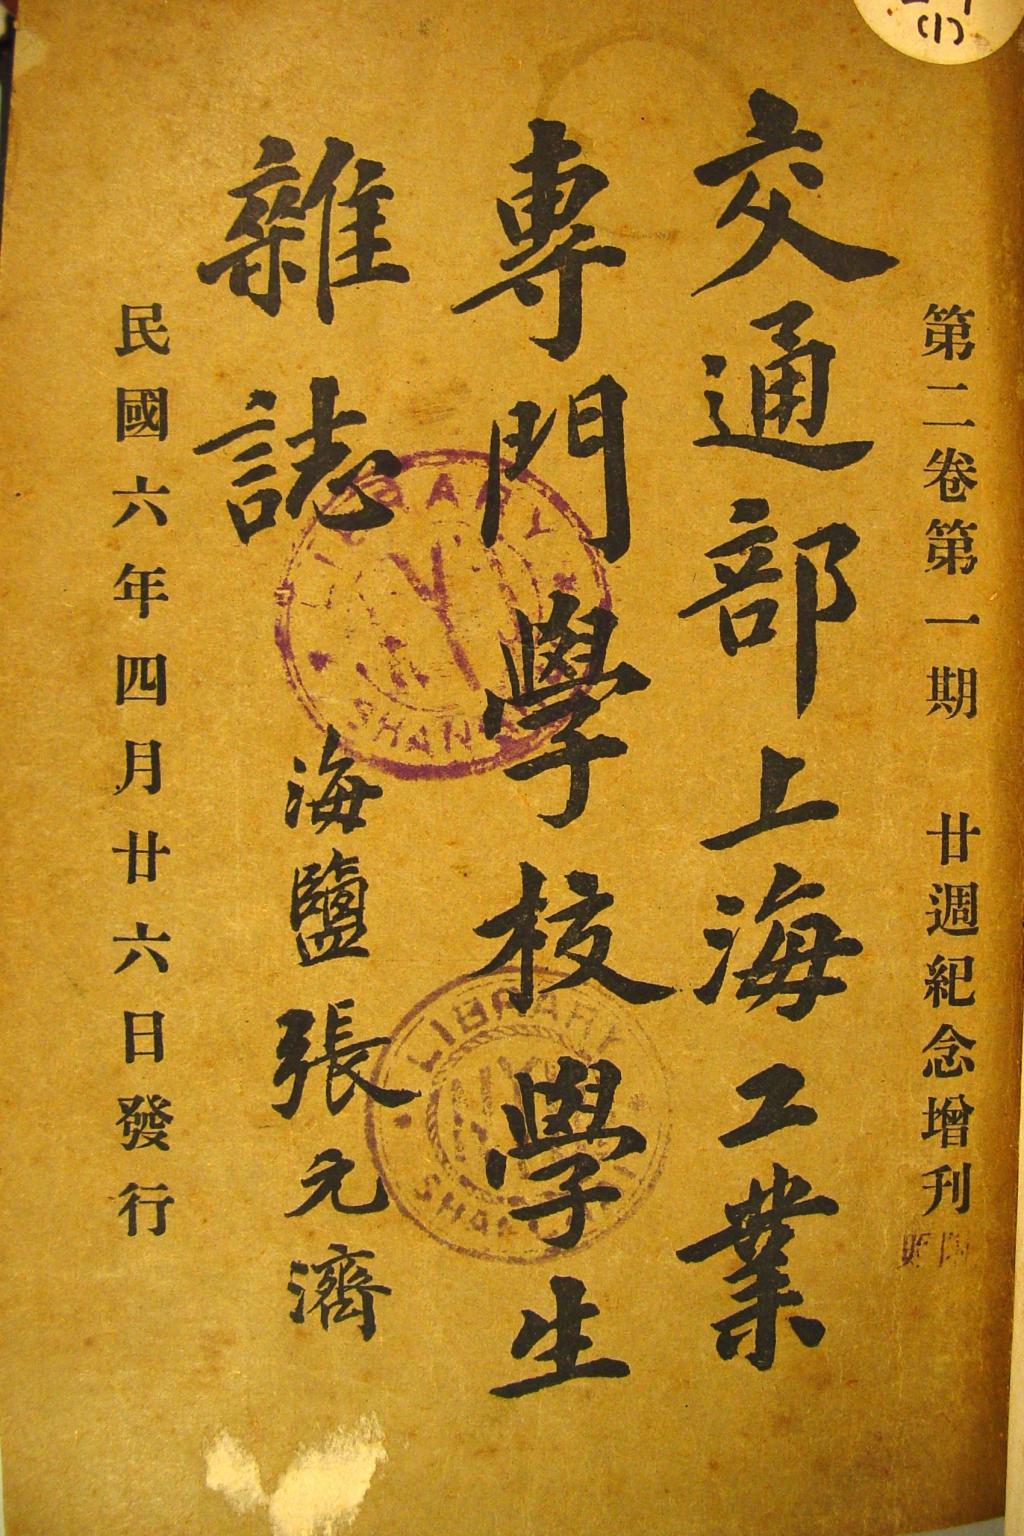 (1)
第二卷第一期 廿週紀念增刊
交通部上海工業
專門學校學生
雜誌
海鹽張元濟
民國六年四月廿六日發行
LIBRARY
SHAN
LIBRARY